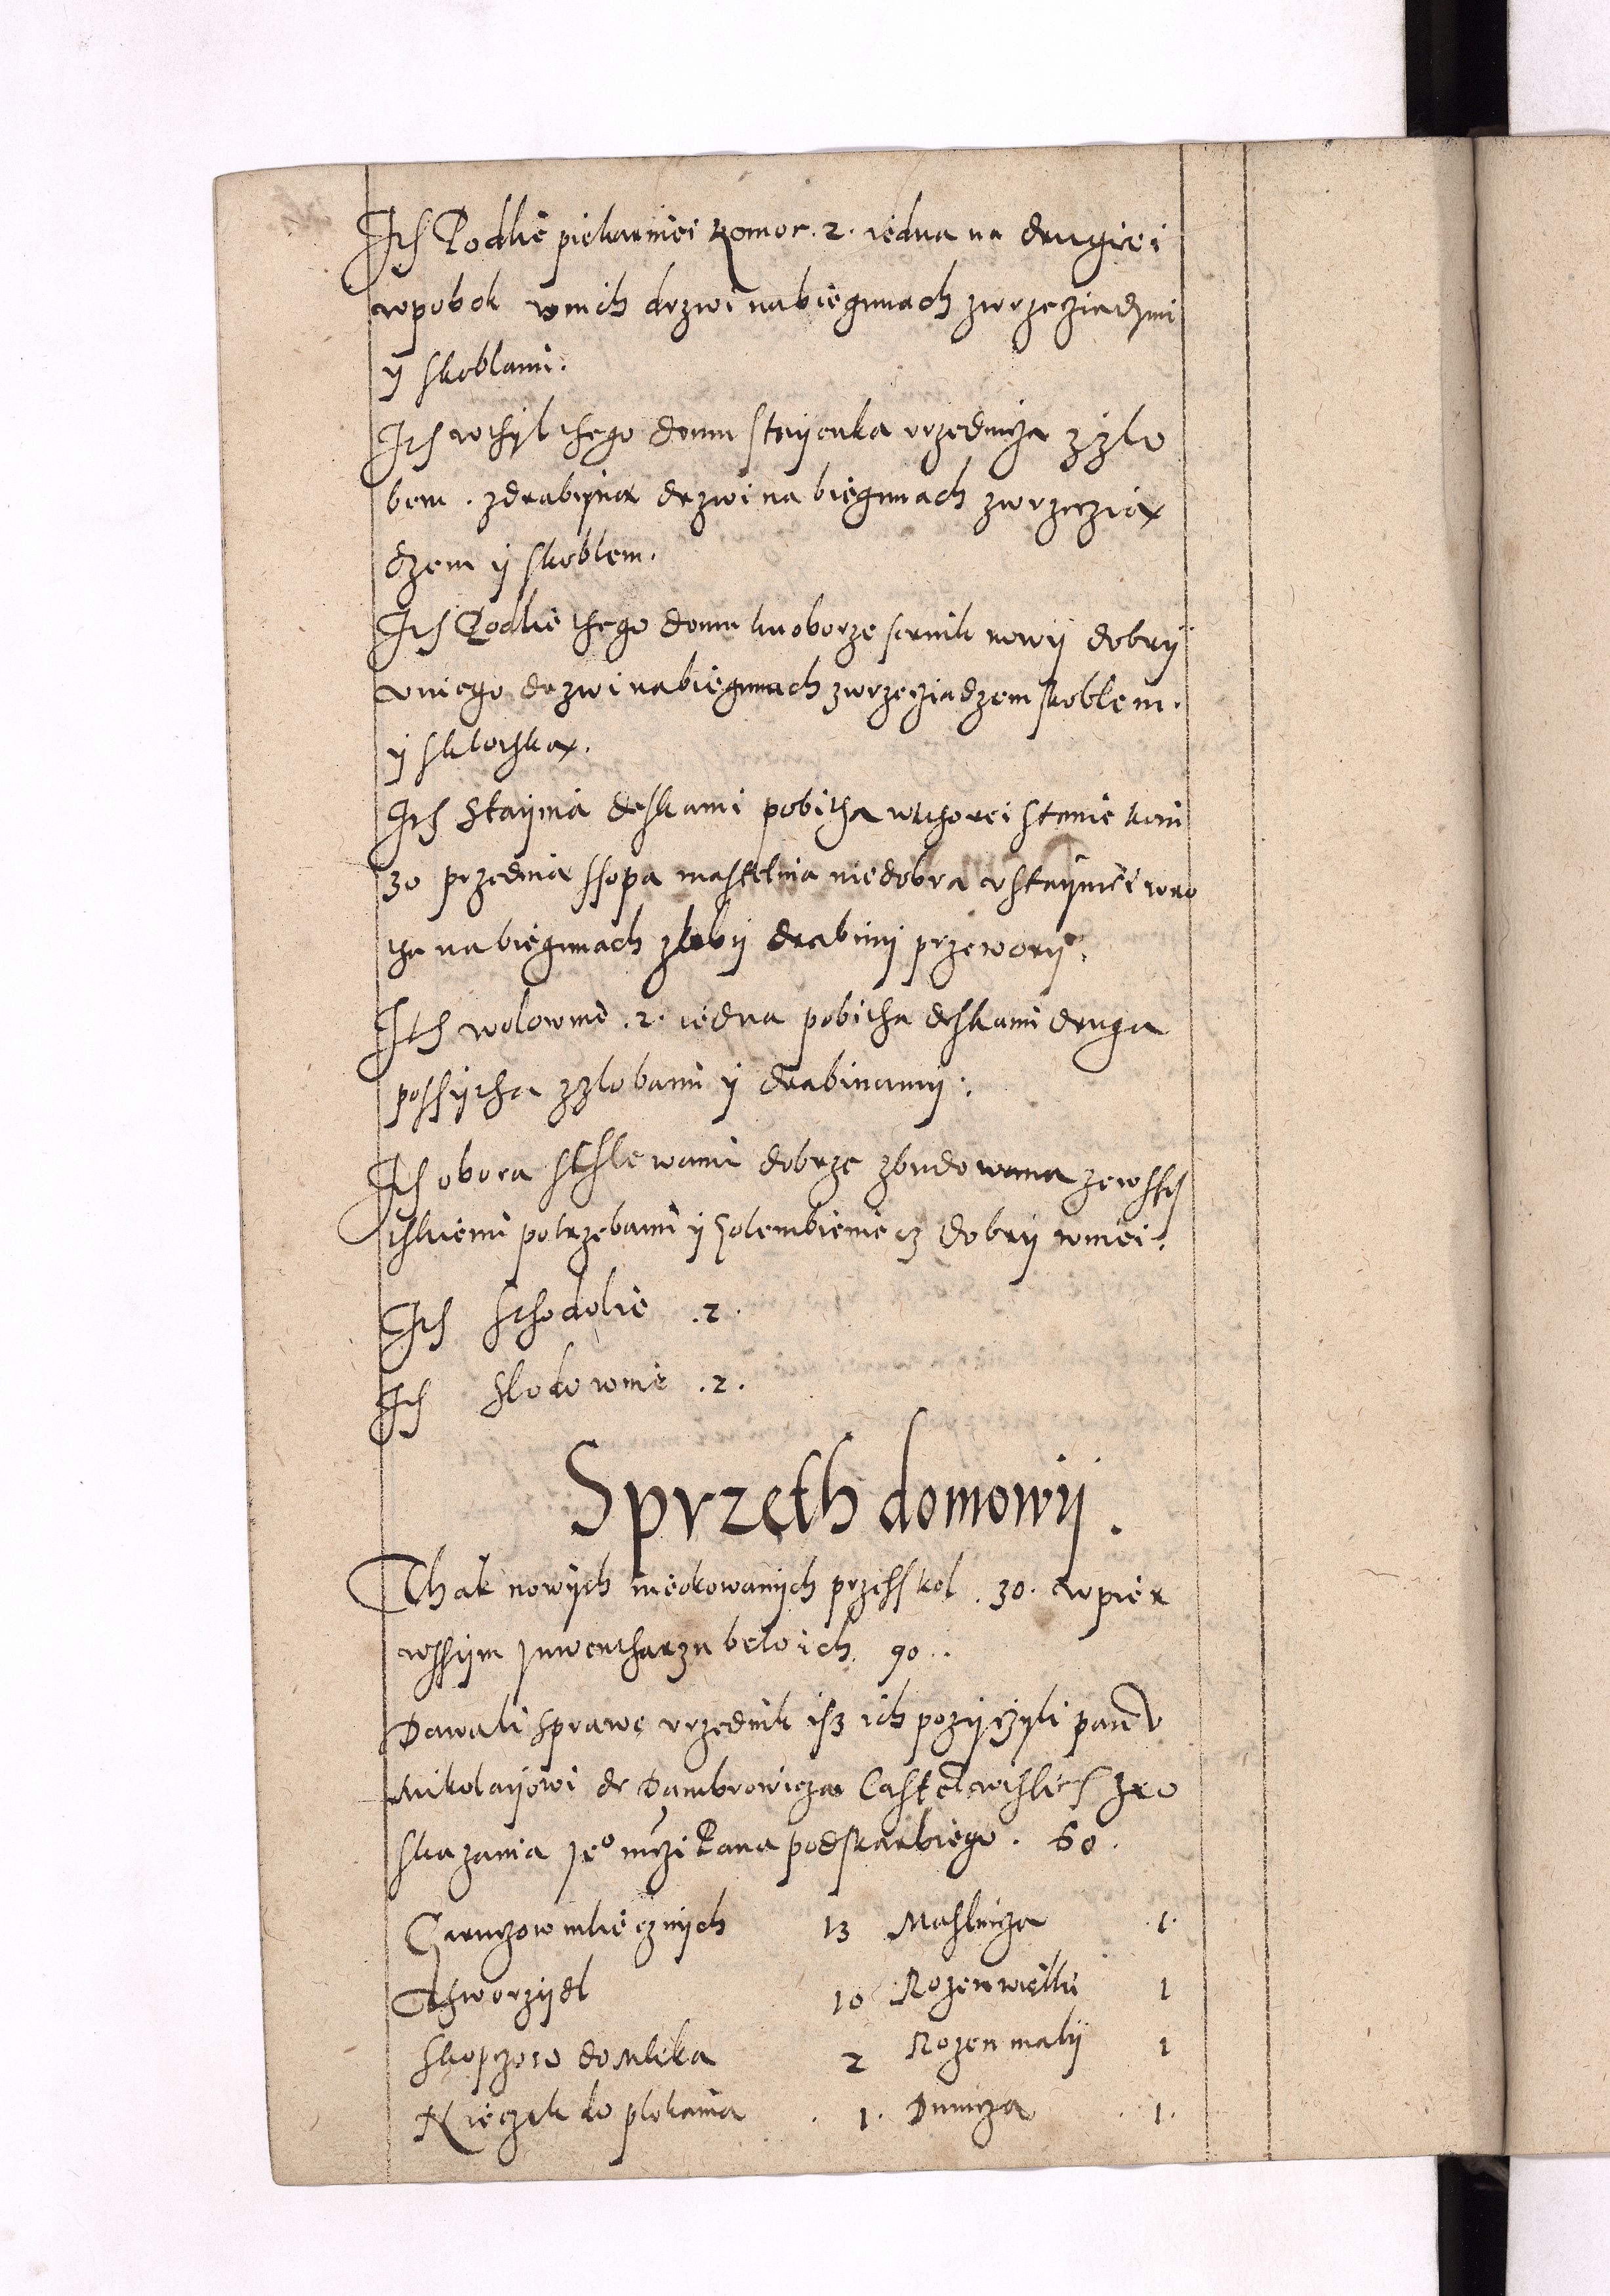 Ith Podlie piekarniei komor .2. iedna na drugiei
wpobok wnich drzwi nabiegunach zwrzecziadzmi
ÿ skoblami.
Ith wthÿl thego domu staÿenka vrzednicza zzlo
bem . zdrabÿną drzwi na biegunach zwrzeczią
dzem ÿ skoblem.
Ith Podlie thego domu kuoborze sernik nowÿ dobrÿ
vniego drzwi nabiegunach zwrzecziadzem skoblem.
ÿ sklothką.
Ith Staÿnia deskami pobitha wkthorei stanie koni
30 przednia ssopa masstelnia niedobra vstaÿniei wro
tha nabiegunach zlobÿ drabinÿ przeworÿ.
Ith wolownie .2. iedna pobitha deskami druga
possÿtha zzlobami ÿ drabinamÿ.
Ith obora schlewami dobrze zbudowana zewssÿ
thkiemi potrzebami ÿ golembieniecz dobrÿ wniei.
Ith sthodolie .2.
Ith Slodownie .2.
Sprzęth domowÿ.
Thak nowÿch nieokowanÿch przess kol . 30. wpier
wssÿm Inwentharzu belo ich. 90..
Dawali sprawę vrzednik isz ich pozÿczÿli panu
Mikolaÿowi de Dambrowicza Castel wislicz zro
skazania Ie° mczi Pana podskarbiego . 60.
Garnczow mliecznÿch 13 Maslnicza 1.
Thworzÿdl 10 Rozen wielki 1
Skopczow do Mleka 2 Rozen malÿ 1
Nieczek do plokania . 1. Dunicza . 1.